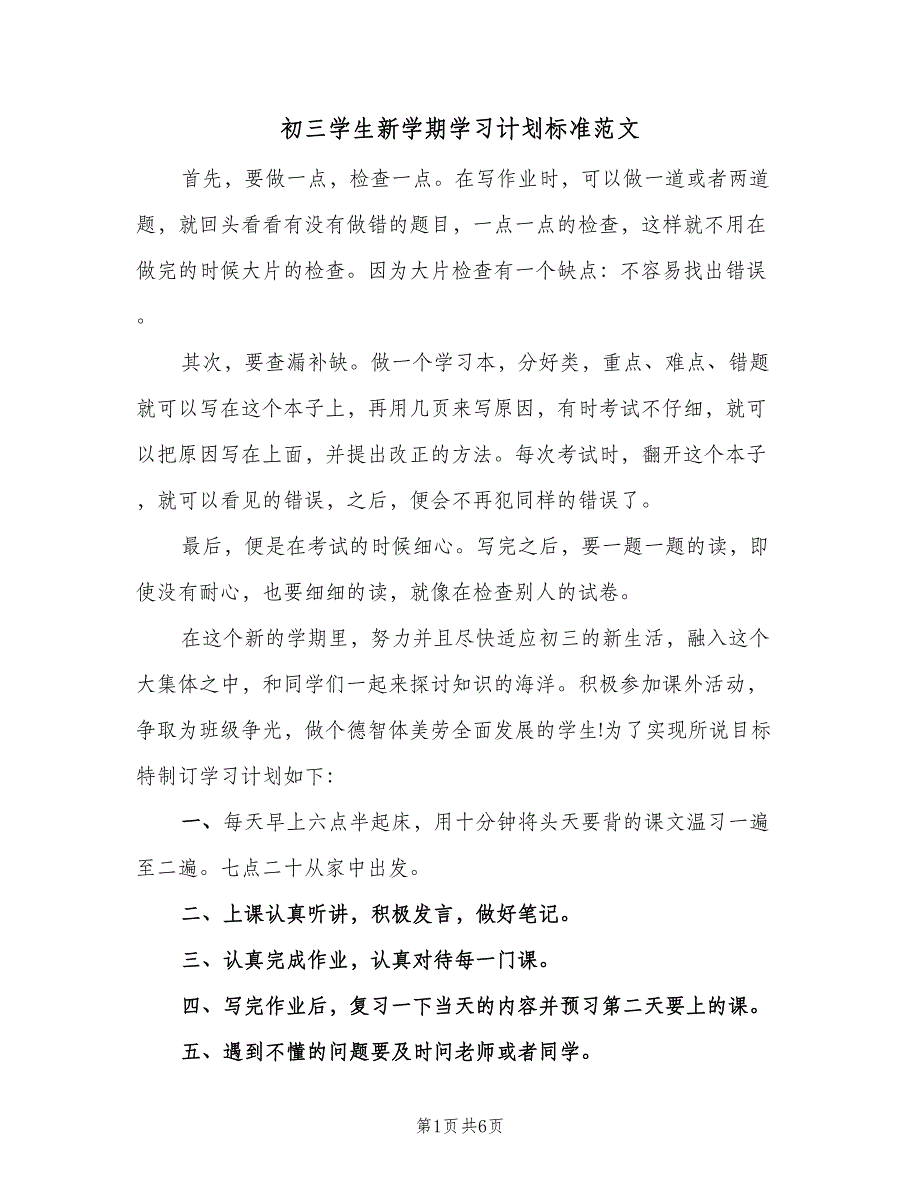 初三学生新学期学习计划标准范文
首先，要做一点，检查一点。在写作业时，可以做一道或者两道
题，就回头看看有没有做错的题目，一点一点的检查，这样就不用在
做完的时候大片的检查。因为大片检查有一个缺点：不容易找出错误
。
其次，要查漏补缺。做一个学习本，分好类，重点、难点、错题
就可以写在这个本子上，再用几页来写原因，有时考试不仔细，就可
以把原因写在上面，并提出改正的方法。每次考试时，翻开这个本子
，就可以看见的错误，之后，便会不再犯同样的错误了。
最后，便是在考试的时候细心。写完之后，要一题一题的读，即
使没有耐心，也要细细的读，就像在检查别人的试卷。
在这个新的学期里，努力并且尽快适应初三的新生活，融入这个
大集体之中，和同学们一起来探讨知识的海洋。积极参加课外活动，
争取为班级争光，做个德智体美劳全面发展的学生!为了实现所说目标
特制订学习计划如下：
一、每天早上六点半起床，用十分钟将头天要背的课文温习一遍
至二遍。七点二十从家中出发。
二、上课认真听讲，积极发言，做好笔记。
三、认真完成作业，认真对待每一门课。
四、写完作业后，复习一下当天的内容并预习第二天要上的课。
五、遇到不懂的问题要及时问老师或者同学。
第1页 共6页